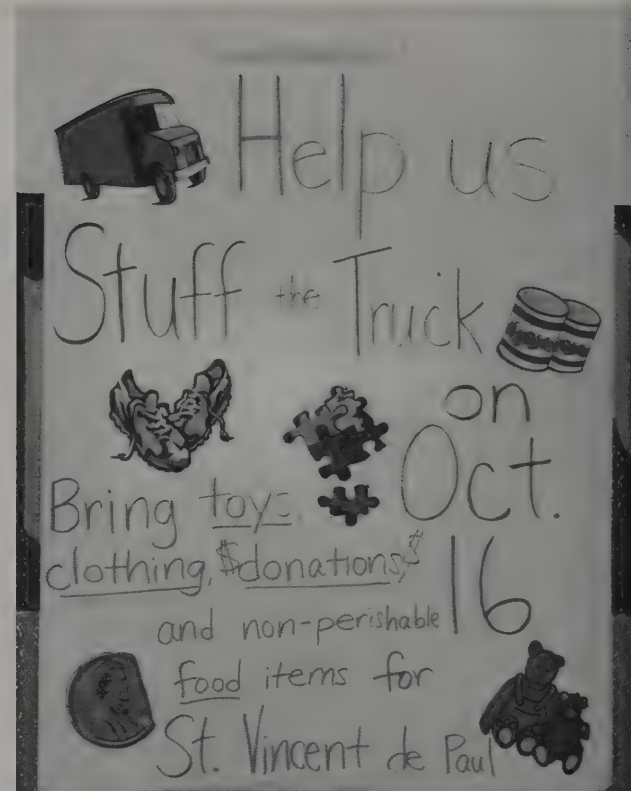 Help us
Stuff the Truck
on
Oct.
16
Bring toys,
clothing, $donations,$
and non-perishable
food items for
St. Vincent de Paul